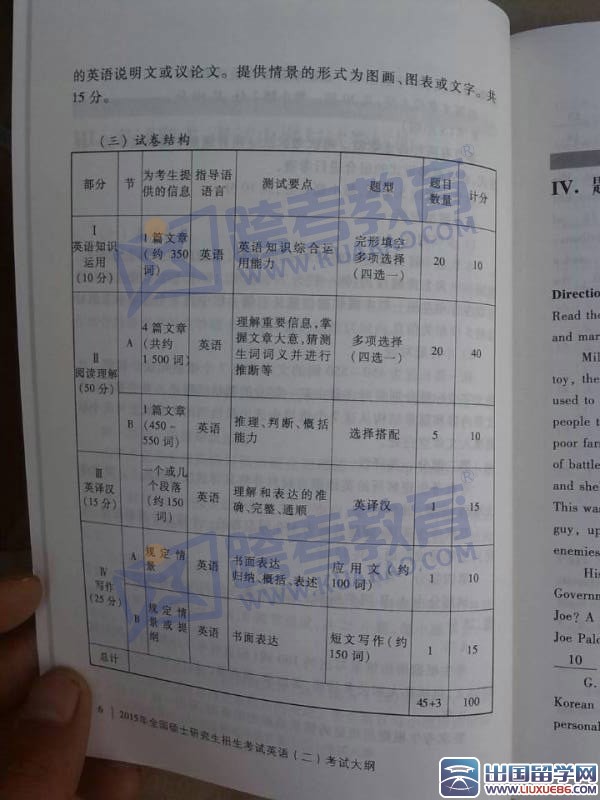 的英语说明文或议论文。提供情景的形式为图画、图表或文字。共
15 分。
(三) 试卷结构
部分 节 为考生提供的信息 指导语语言 测试要点 题型 题目数量 计分
Ⅰ 英语知识运用 (10 分) 1 篇文章 (约 350 词) 英语 英语知识综合运用能力 完形填空 多项选择 (四选一) 20 10
Ⅱ 阅读理解 (50 分) A 4 篇文章 (共约 1 500 词) 英语 理解重要信息,掌握文章大意,猜测生词词义并进行推断等 多项选择 (四选一) 20 40
B 1 篇文章 (450～550 词) 英语 推理、判断、概括能力 选择搭配 5 10
Ⅲ 英译汉 (15 分) 一个或几个段落 (约 150 词) 英语 理解和表达的准确、完整、通顺 英译汉 1 15
Ⅳ 写作 (25 分) A 规定情景 英语 书面表达 归纳、概括、表述 应用文 (约 100 词) 1 10
B 规定情景或提纲 英语 书面表达 短文写作 (约 150 词) 1 15
总计 45+3 100
6 | 2015年全国硕士研究生招生考试英语(二)考试大纲
Ⅳ.
Direction
Read the
and mar
Mil
toy, the
used to
people t
poor farm
of battle
and she
This was
guy, up
enemies
His
Governm
Joe? A
Joe Palo
10
G.
Korean
personal
跨考教育
跨考教育
出国留学网
www.liuxue86.com